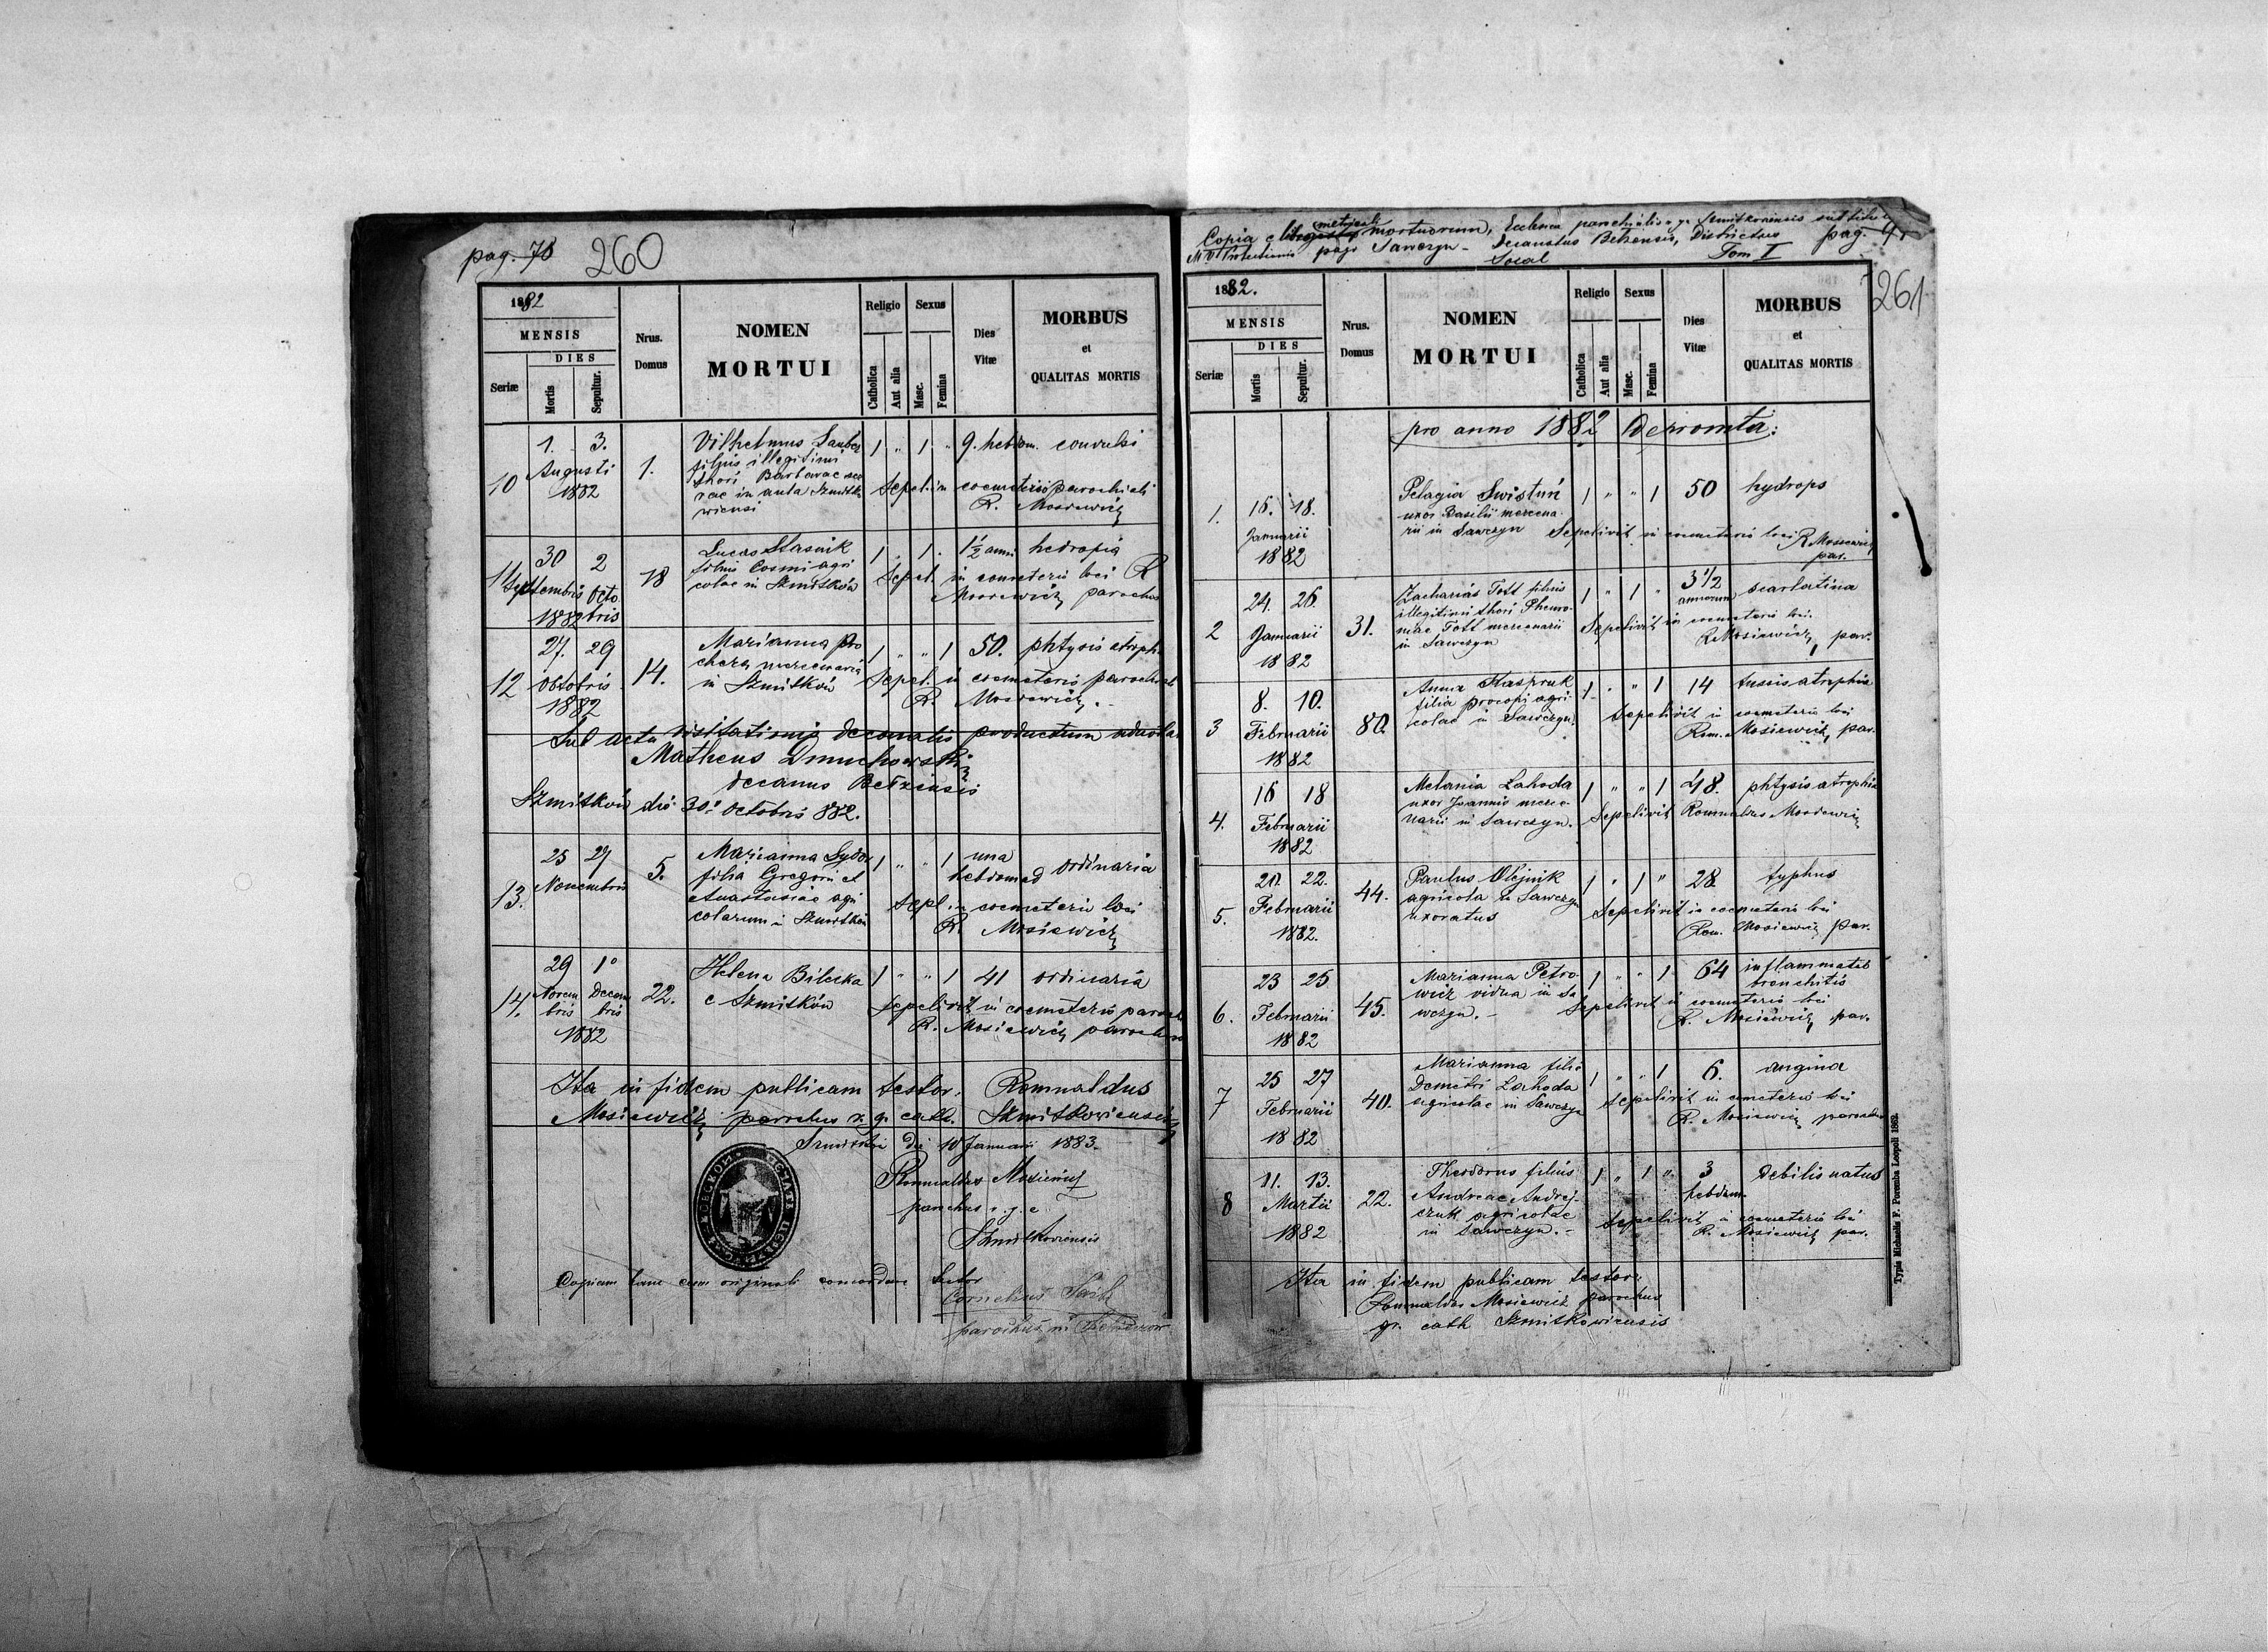 pag. 78
260
1882
MENSIS
DIES
Seriæ
Mortis
Sepultur.
Nrus.
Domus
NOMEN
MORTUI
Religio
Catholica
Aut alia
Sexus
Masc.
Femina
Dies
Vitæ
MORBUS
et
QUALITAS MORTIS
10
1. 3.
Augusti
1882
1.
Vilhelmus
filius illegitimi
thori Barbarae
in aula
1 " 1 "
9. hebdom. convulsi
Sepel. in coemeterio parochiali
R. Mosiewicz
11
30 2
Septembris Octo
1882 bris
18
Lucas Stasiuk
filius Cosmi agri
colae in Szmitków
1 " 1 "
1½ anni
Sepel. in coemeterio loci R
Mosiewicz parochus
12
27. 29
Octobris
1882
14.
Marianna Pro
mercenaria
in Szmitków
1 " " 1
50. phtysis atroph.
Sepel. in coemeterio paroch
R. Mosiewicz. -
Sub actu visitationis decanalis productum
Matheus Dmuchowski
decanus Bełziensis
Szmitków die 30. Octobris 882.
13.
25 27
Novembris
5.
Marianna Sydor
filia Gregorii et
Anastasiae agri
colarum in Szmitków
1 " " 1
una
hebdomad ordinaria
Sepel. in coemeterio loci
R. Mosiewicz
14.
29 1°
Novem Decem
bris bris
1882
22.
Helena Bilecka
e Szmitków
1 " " 1
41 ordinaria
Sepelivit in coemeterio paroch
R. Mosiewicz parochus
Ita in fidem publicam testor. Romualdus
Mosiewicz parochus r. g. cath. Szmitkoviensis
Szmitków die 10 Januarii 1883.
Romualdus Mosiewicz
parochus r. g. c
Szmitkoviensis
Copiam hanc cum originali concordare testor
Cornelius
parochus in
Copia e libro metricali mortuorum, Ecclesiae parochialis r. g. Szmitkoviensis
pago Sawczyn - Decanatus Belzensis, Districtus pag. 9
Socal Tom I
261
1882.
MENSIS
DIES
Seriæ
Mortis
Sepultur.
Nrus.
Domus
NOMEN
MORTUI
Religio
Catholica
Aut alia
Sexus
Masc.
Femina
Dies
Vitæ
MORBUS
et
QUALITAS MORTIS
pro anno 1882
1.
16. 18.
Januarii
1882
Pelagia Swistuń
uxor Basilii mercena-
rii in Sawczyn
1 " " 1
50 hydrops
Sepelivit in coemeterio loci R. Mosiewicz
par.
2
24. 26.
Januarii
1882
31.
Zacharias Tott filius
illegitimi thori Pheuro-
niae Tott mercenarii
in Sawczyn
1 " 1 "
3 1/2
annorum scarlatina
Sepelivit in coemeterio loci
R. Mosiewicz, par.
3
8. 10.
Februarii
1882
80.
Anna
filia Procopi agri-
colae in Sawczyn
1 " " 1
14 tussis atrophia
Sepelivit in coemeterio loci
Rom. Mosiewicz, par.
4.
16 18
Februarii
1882
Melania Lahoda
uxor Joannis merce-
narii in Sawczyn.
1 " " 1
48. phtysis atrophia
Sepelivit Romualdus Mosiewicz
5.
20. 22.
Februarii
1882.
44.
Paulus Olejnik
agricola in Sawczyn
uxoratus
1 " 1 "
28 typhus
Sepelivit in coemeterio loci
Rom. Mosiewicz par.
6.
23 25
Februarii
1882
45.
Marianna Petro-
wicz vidua in Sa
wczyn. -
1 " " 1
64 inflammatio
bronchitis
Sepelivit in coemeterio loci
R. Mosiewicz, par.
7
25 27
Februarii
1882
40.
Marianna filia
Demetri Lahoda
agricolae in Sawczyn
1 " " 1
6. angina
Sepelivit in cemeterio loci
R. Mosiewicz parochus
8
11. 13.
Martii
1882
22.
Theodorus filius
Andreae Andrej-
czuk agricolae
in Sawczyn. -
1 " 1 "
3
hebdom. debilis natus
Sepelivit in coemeterio loci
R. Mosiewicz par.
Ita in fidem publicam testor.
Romualdus Mosiewicz parochus
gr. cath Szmitkowiensis
Typis Michaelis F. Poremba Leopoli 1862.